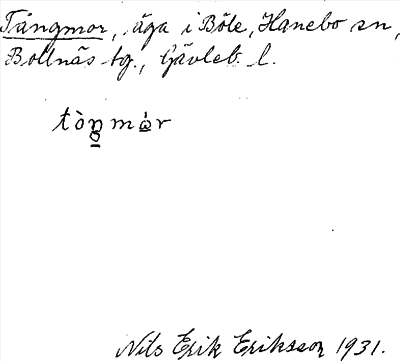 Tångmor, äga i Böle, Hanebo sn,
Bollnäs tg., Gävleb. l.
tòŋmór
Nils Erik Eriksson 1931.